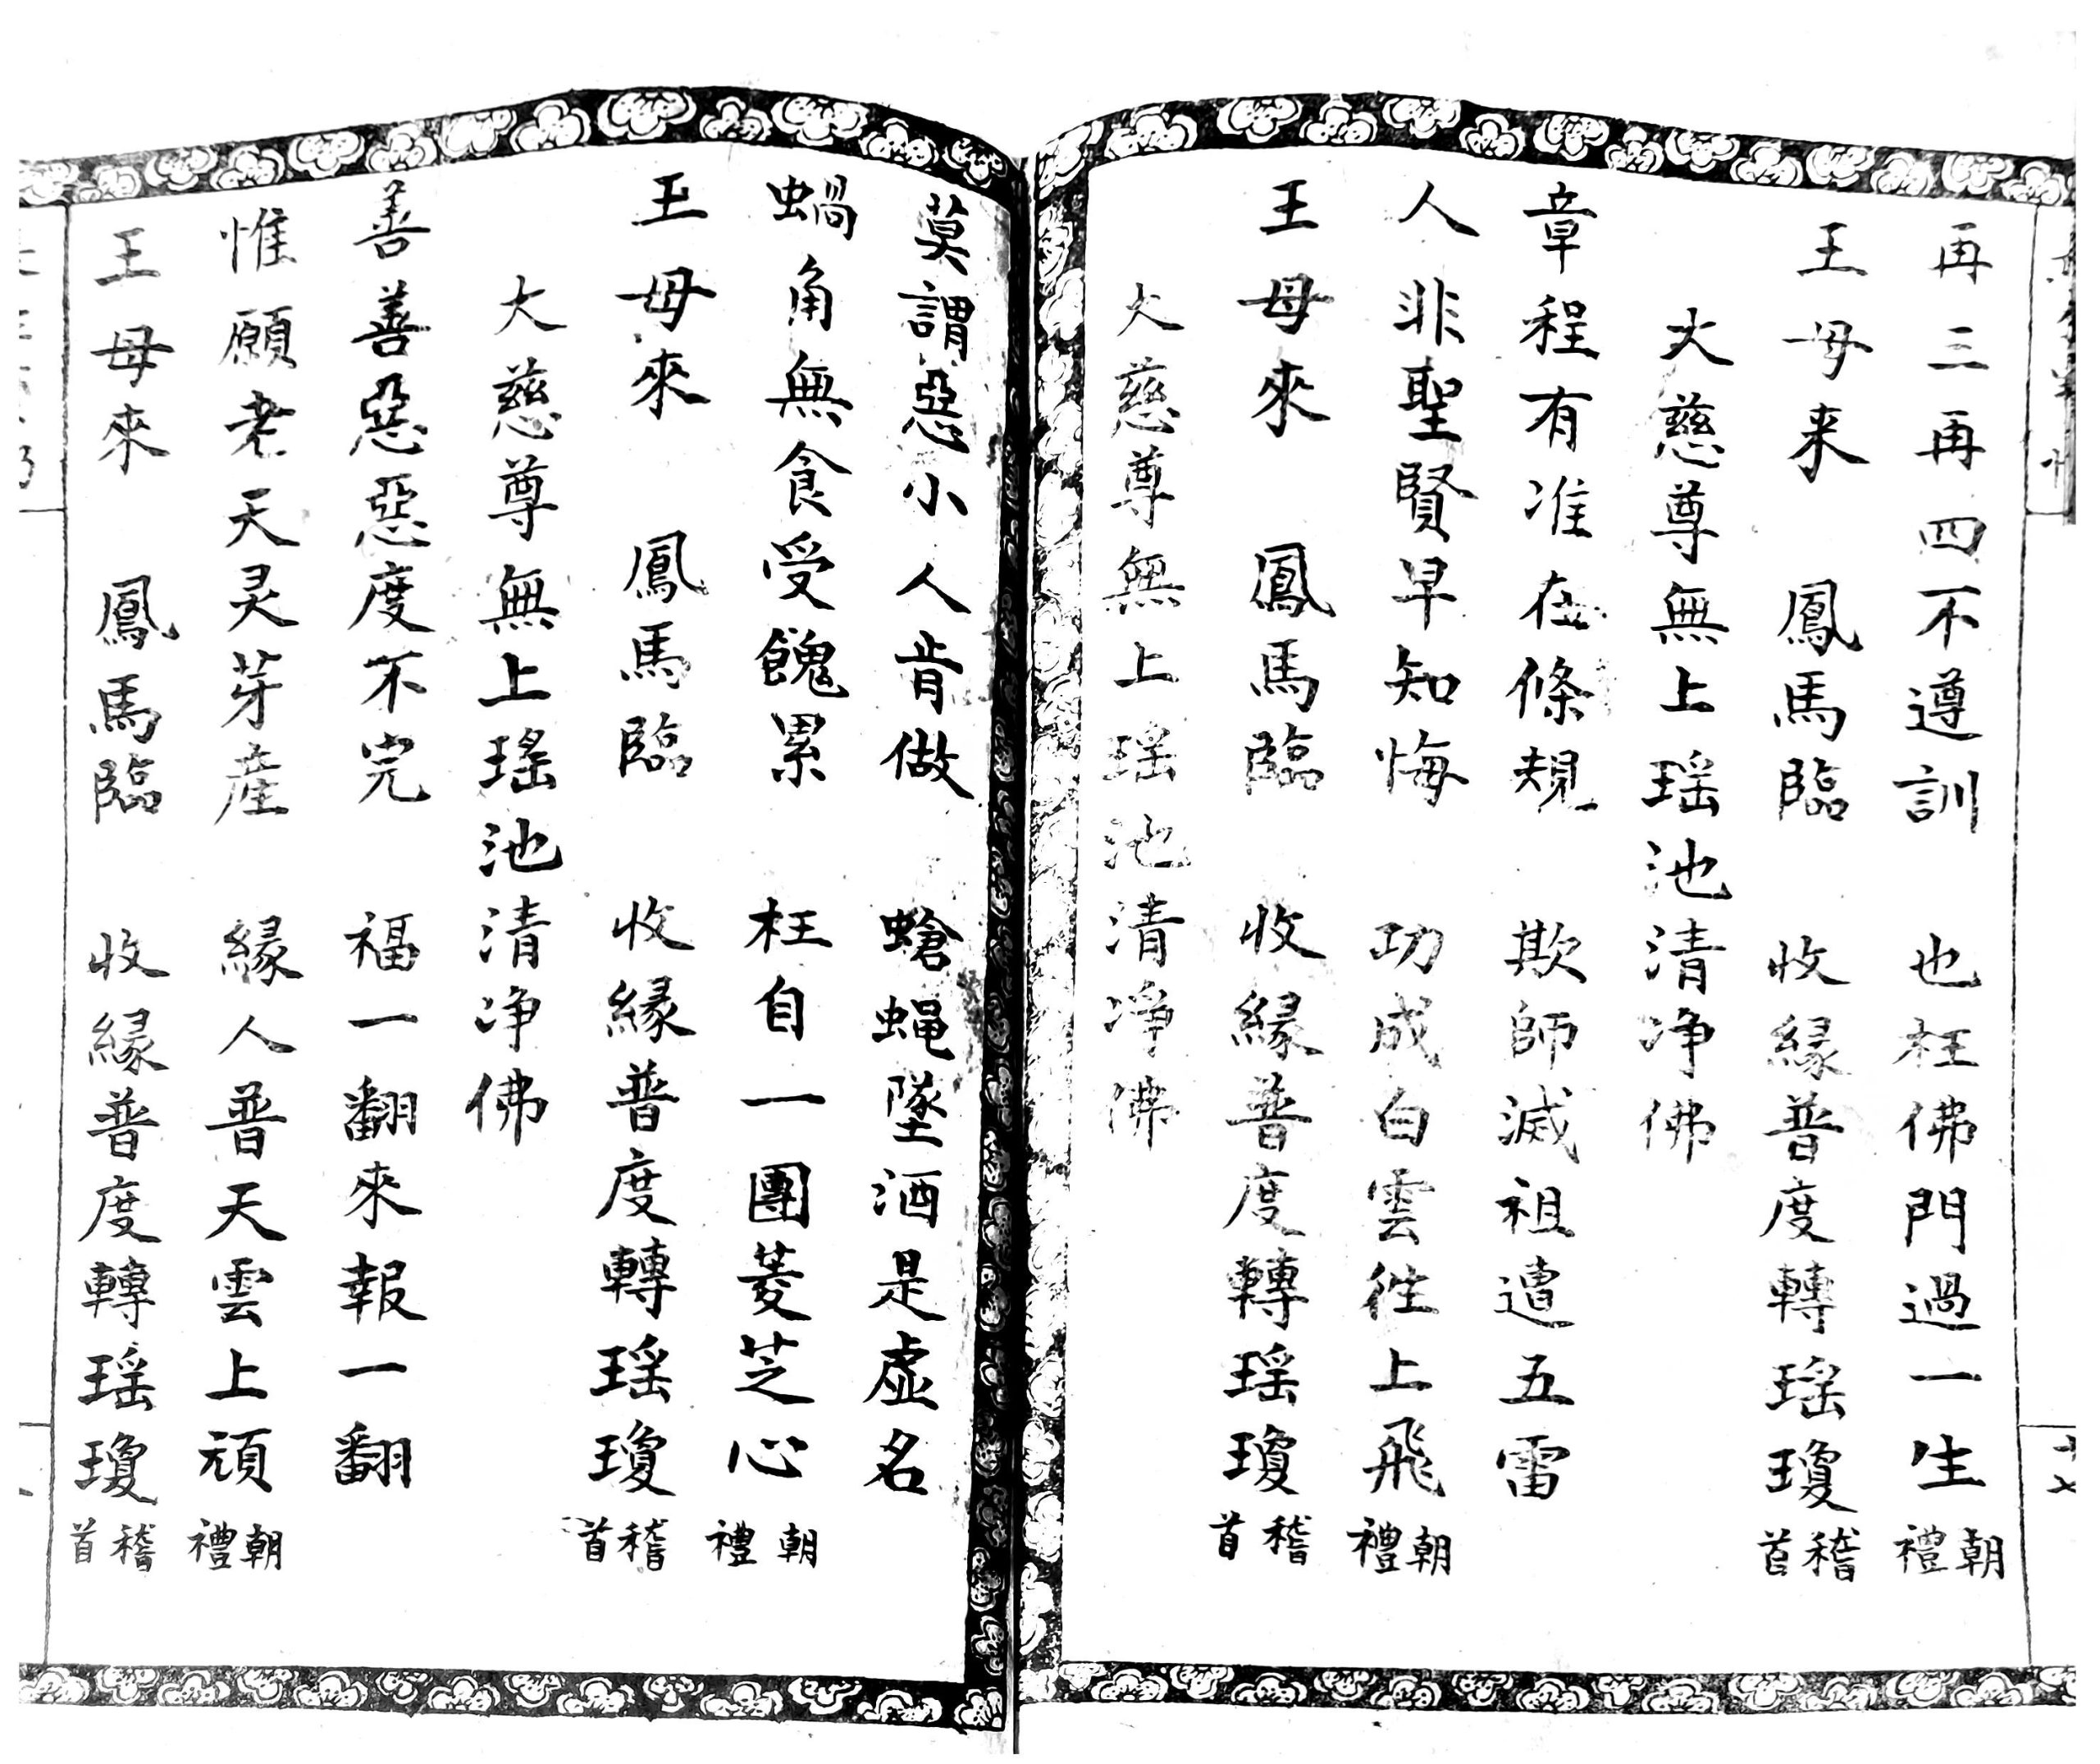 再三再四不遵訓　也枉佛門過一生 朝禮
王母来　鳳馬臨　收緣普度轉瑶瓊 稽首
大慈尊無上瑶池清净佛
章程有准在條規　欺師滅祖遭五雷
人非聖賢早知悔　功成白雲徃上飛 朝禮
王母來　鳳馬臨　收緣普度轉瑶瓊 稽首
大慈尊無上瑶池清净佛
莫謂惡小人肯做　螥蝇墜酒是虚名
蝸角無食受餽累　枉自一團菱芝心 朝禮
王母來　鳳馬臨　收緣普度轉瑶瓊 稽首
大慈尊無上瑶池清净佛
善善惡惡度不完　福一翻來報一翻
惟願老天灵芽産　緣人普天雲上頑 朝禮
王母來　鳳馬臨　收緣普度轉瑶瓊 稽首